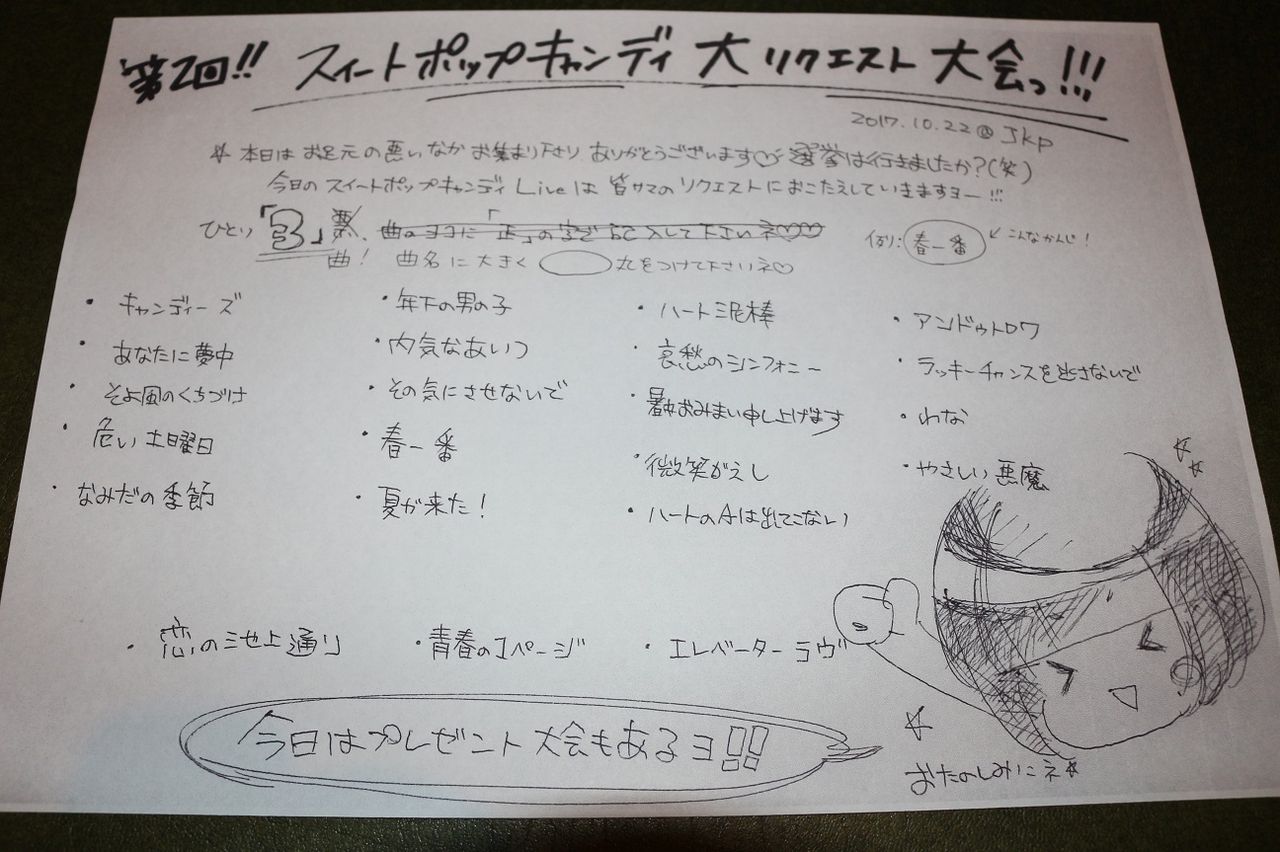 第2回!! スイートポップキャンディ 大リクエスト 大会っ!!!
2017.10.22@Jkp
☆ 本日は お足元の悪いなか お集まり下さり ありがとうございます♡ 選挙は行きましたか?(笑)
今日の スイートポップキャンディ Liveは 皆サマの リクエストに おこたえしていきますヨー!!!
ひとり「3」票. 曲のヨコに「正」の字で 記入して下さいネ♡♡
例り: 春一番 ← こんなかんじ!
曲! 曲名に大きく 丸をつけて下さいネ♡
・キャンディーズ
・年下の男の子
・ハート泥棒
・アンドゥトロワ
・あなたに夢中
・内気なあいつ
・哀愁のシンフォニー
・ラッキーチャンスを逃さないで
・そよ風のくちづけ
・その気にさせないで
・暑中おみまい申し上げます
・わな
・危い土曜日
・春一番
・微笑がえし
・やさしい悪魔
・なみだの季節
・夏が来た!
・ハートのAは出てこない
・恋の三池上通り
・青春の1ページ
・エレベーターラヴ
今日はプレゼント大会もあるヨ!!
おたのしみにネ☆